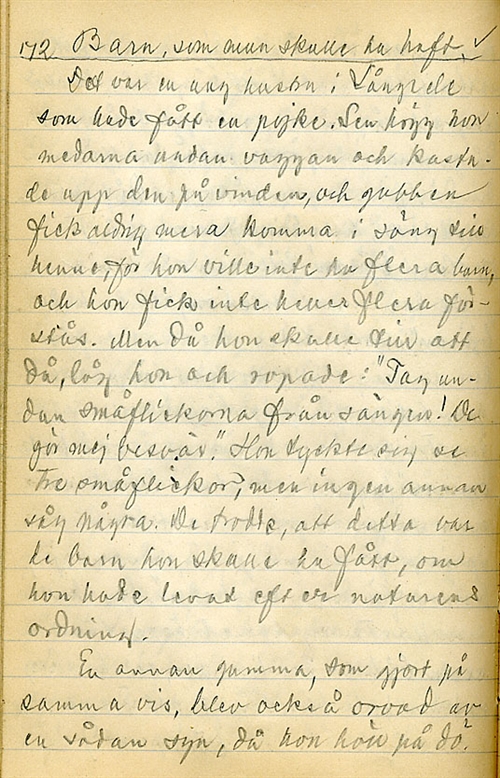 172 Barn, som man skulle ha haft. ✓
Det var en ung hustru i Långrede
som hade fått en pojke. Sen högg hon
medarna undan vaggan och kasta-
de upp den på vinden, och gubben
fick aldrig mera komma i säng till
henne, för hon ville inte ha flera barn,
och hon fick inte heller flera för-
stås. Men då hon skulle till att
dö, låg hon och ropade: "Tag un-
dan småflickorna från sängen! De
gör mej besvär." Hon tyckte sig se
tre småflickor, men ingen annan
såg några. De trodde, att detta var
de barn hon skulle ha fått, om
hon hade levat efter naturens
ordning.
En annan gumma, som gjort på
samma vis, blev också oroad av
en sådan syn, då hon höll på dö.